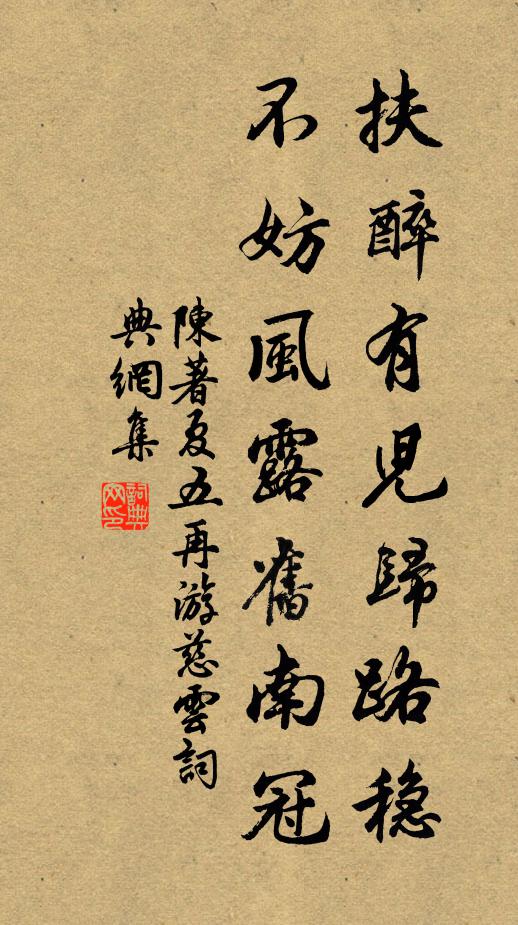 扶醉有兒歸路穩
不妨風露舊南冠
陳著夏五再游慈雲詞
典網集
詞典
网印